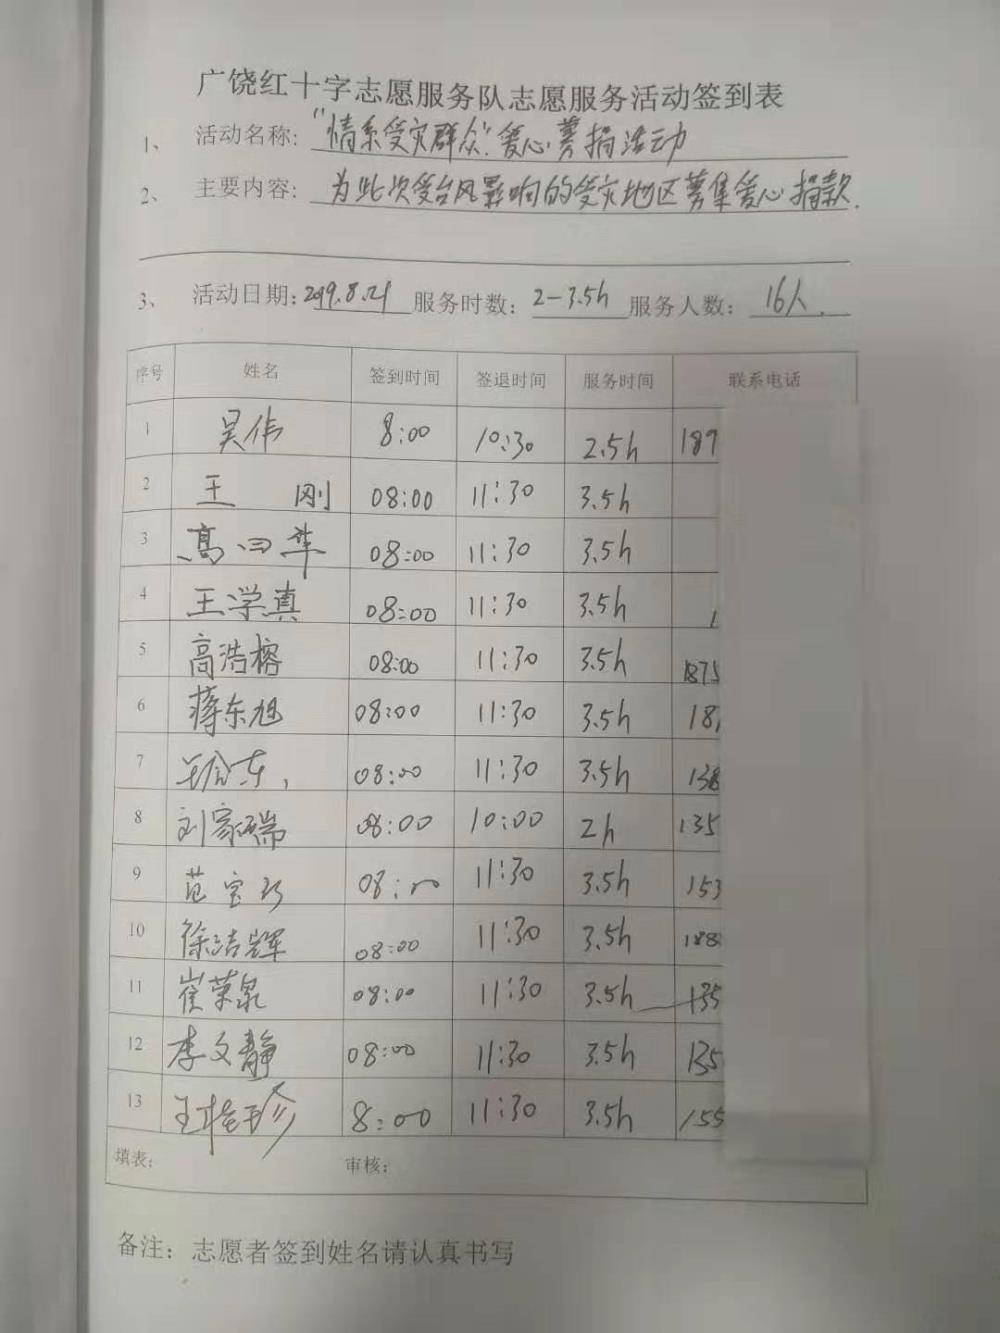 广饶红十字志愿服务队志愿服务活动签到表
1、 活动名称: “情系受灾群众”爱心募捐活动
2、 主要内容: 为此次受台风影响的受灾地区募集爱心捐款.
3、 活动日期: 2019.8.21 服务时数: 2-3.5h 服务人数: 16人.
序号 姓名 签到时间 签退时间 服务时间 联系电话
1 吴伟 8:00 10:30 2.5h 189
2 王 刚 08:00 11:30 3.5h
3 高 华 08:00 11:30 3.5h
4 王学真 08:00 11:30 3.5h 1
5 高浩榕 08:00 11:30 3.5h 1875
6 蒋东旭 08:00 11:30 3.5h 18
7 08:00 11:30 3.5h 138
8 刘家瑞 08:00 10:00 2h 135
9 范宝 08:00 11:30 3.5h 153
10 徐洁辉 08:00 11:30 3.5h 188
11 崔荣泉 08:00 11:30 3.5h 135
12 李文静 08:00 11:30 3.5h 135
13 王桂珍 8:00 11:30 3.5h 155
填表: 审核:
备注: 志愿者签到姓名请认真书写